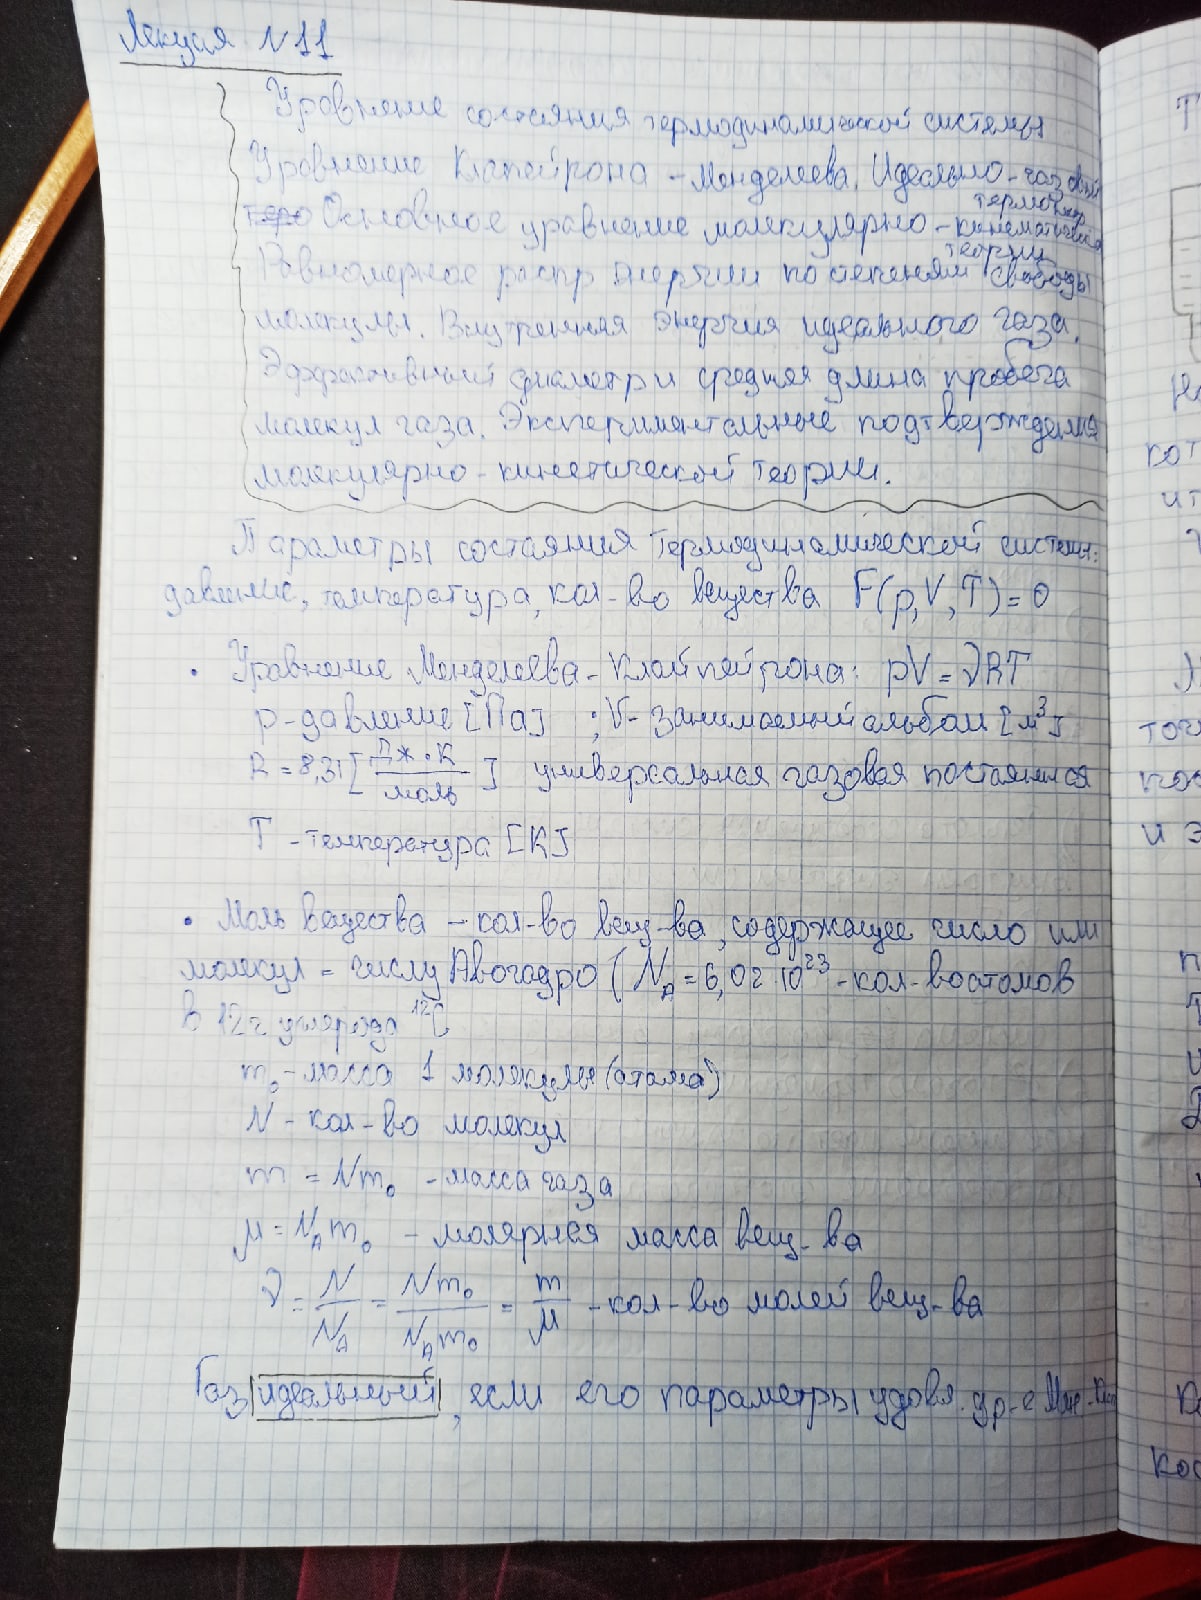 Лекция №11
Уравнение состояния термодинамической системы
Уравнение Клапейрона - Менделеева. Идеально-газовый
термометр
Основное уравнение молекулярно - кинематической
теории
Равномерное распр энергии по степеням свободы
молекулы. Внутренняя энергия идеального газа.
Эффективный диаметр и средняя длина пробега
молекул газа. Экспериментальные подтверждения
молекулярно - кинетической теории.
Параметры состояния термодинамической системы:
давление, температура, кол-во вещества F(p,V,T)=0
• Уравнение Менделеева-Клайпейрона: pV=νRT
p-давление [Па] ; V- занимаемый обьбем [м³]
R=8,31[Дж·К/моль] универсальная газовая постоянная
T - температура [К]
• Моль вещества - кол-во вещ-ва, содержащее число или
молекул = числу Авогадро (N_A=6,02·10²³ -кол-во атомов
в 12г углерода ¹²C
m₀-масса 1 молекулы (атома)
N - кол-во молекул
m = Nm₀ - масса газа
μ=N_A m₀ - молярная масса вещ-ва
ν = N/N_A = Nm₀/N_A m₀ = m/μ - кол-во молей вещ-ва
Газ идеальный, если его параметры удовл. ур-е